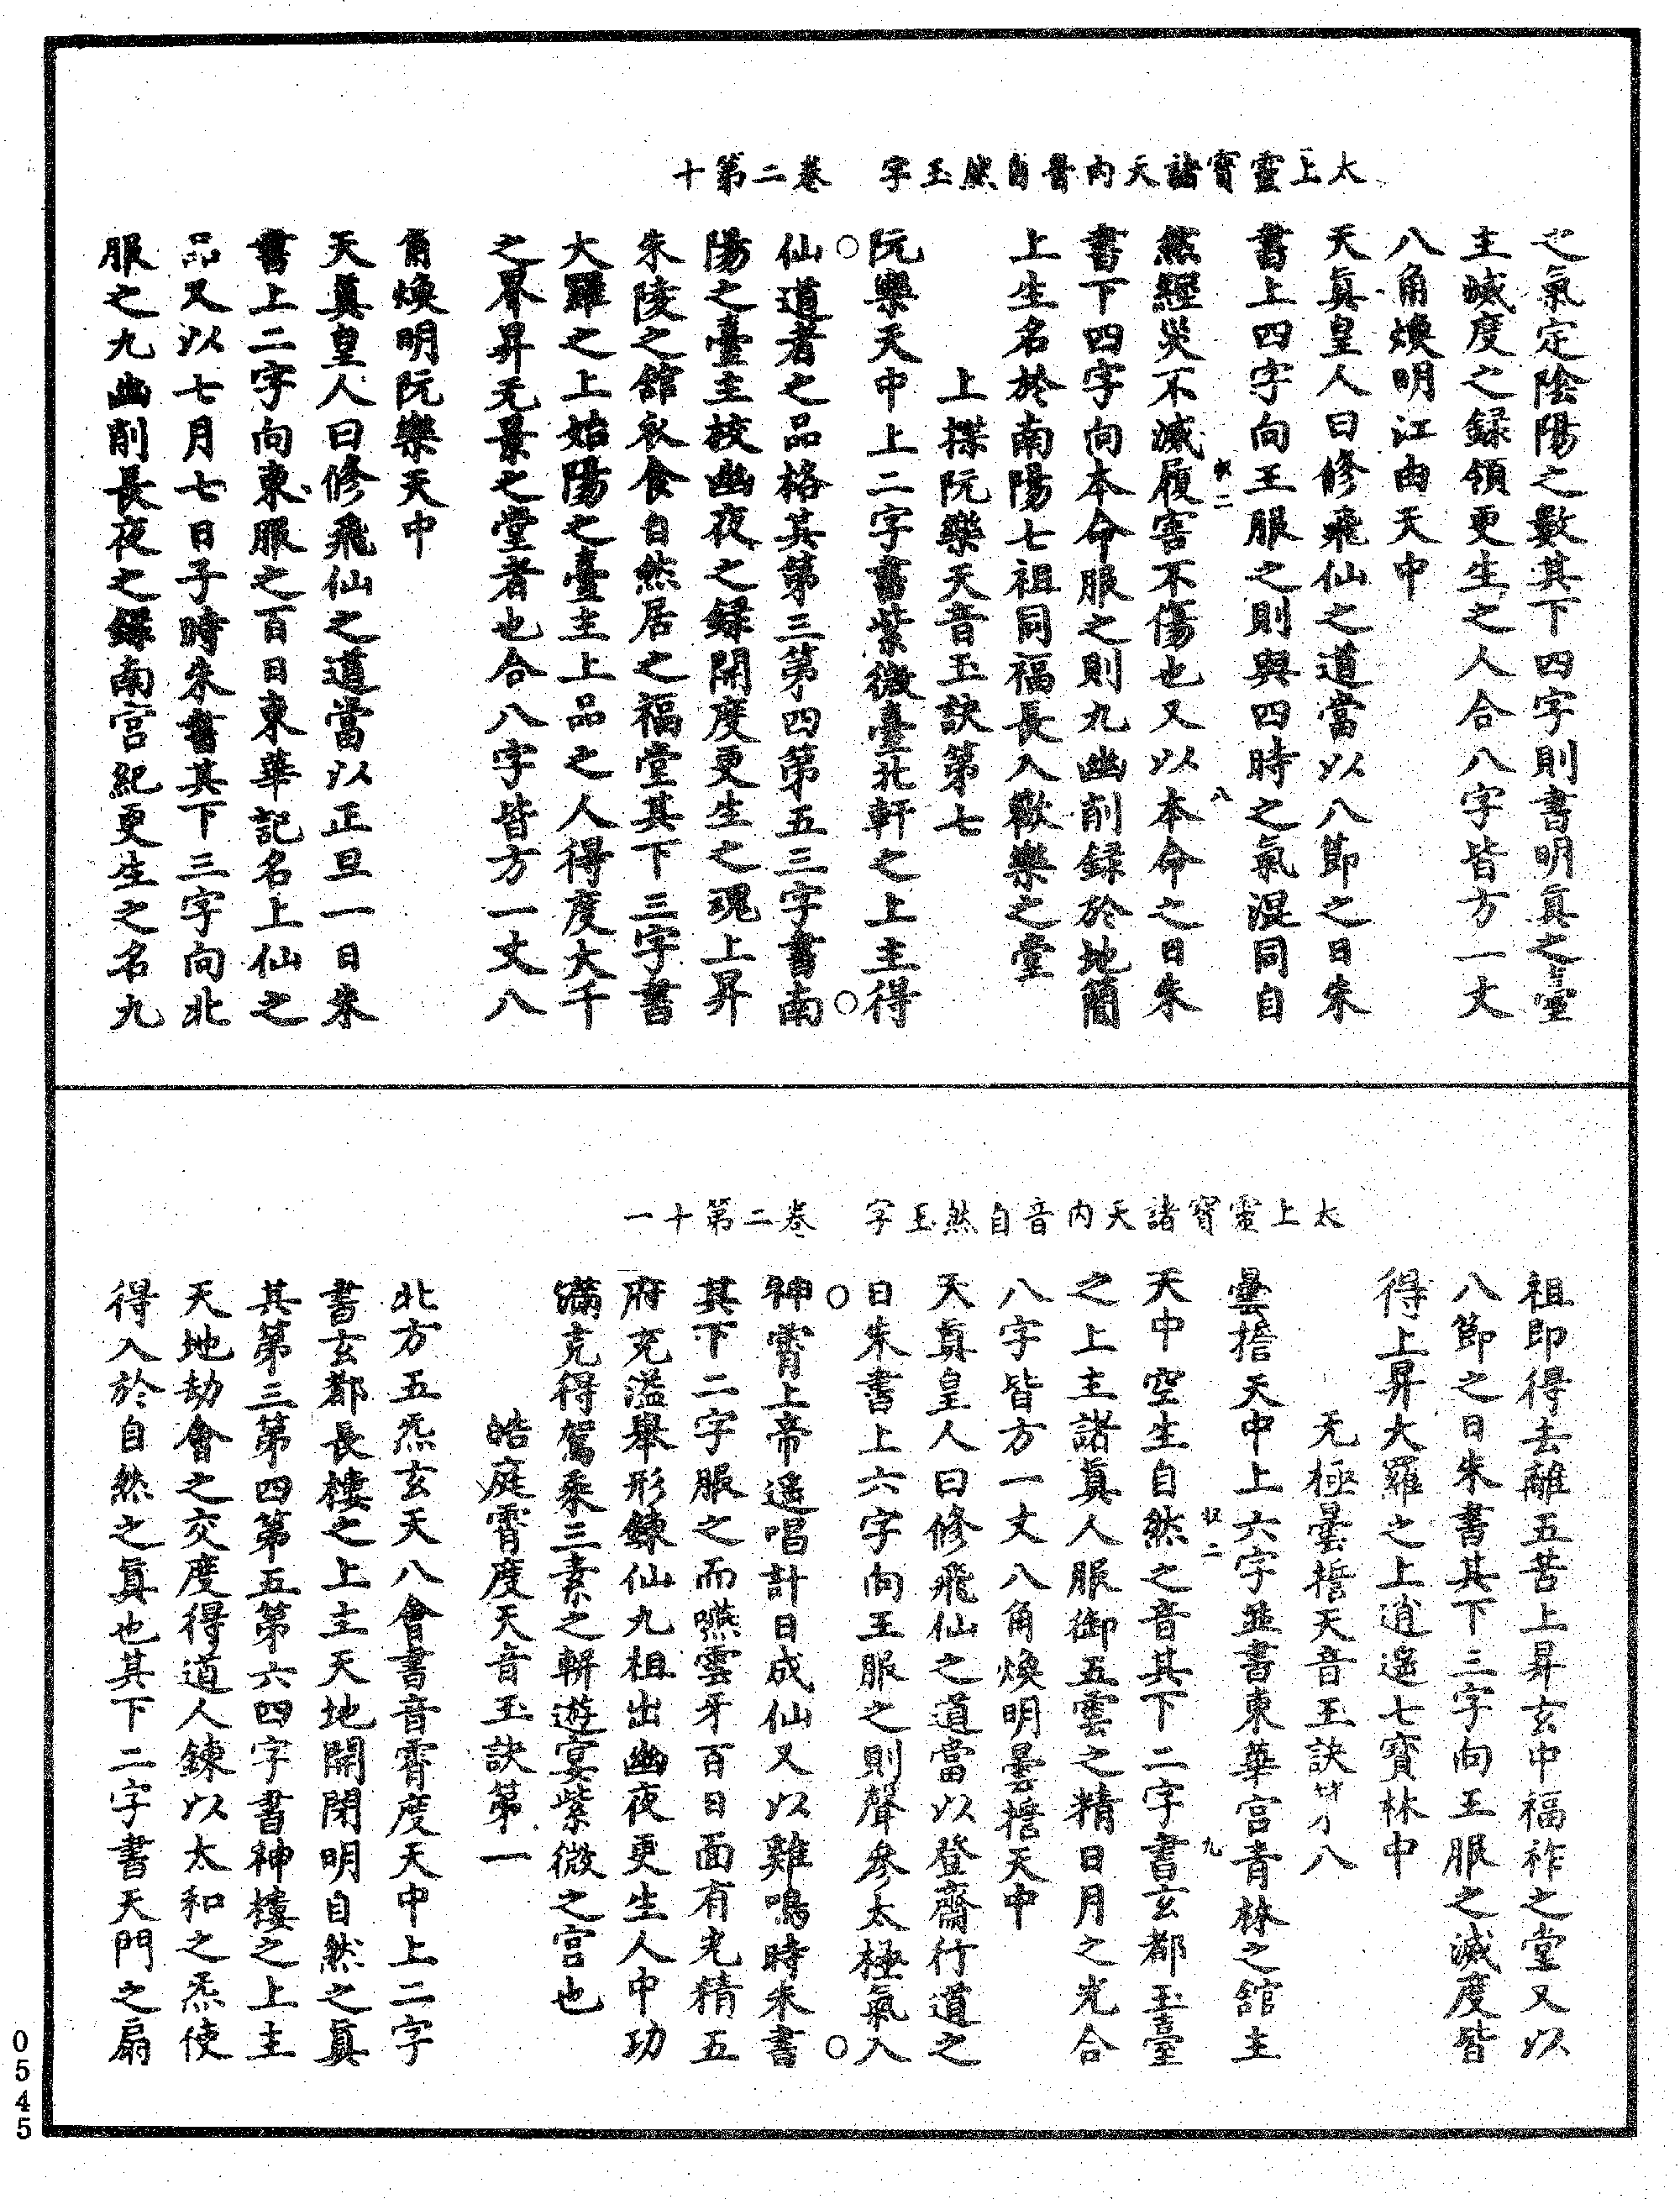 太上靈寶諸天內音自然玉字　卷二第十
之氣定陰陽之數其下四字則書明真之臺
主滅度之録領更生之人合八字皆方一丈
八角煥明江由天中
天真皇人曰修飛仙之道當以八節之日朱
書上四字向王服之則與四時之氣混同自
然經災不滅履害不傷也又以本命之日朱
書下四字向本命服之則九幽削録於地簡
上生名於南陽七祖同福長入歡樂之堂
上揲阮樂天音玉訣第七
阮樂天中上二字書紫微臺北軒之上主得
仙道者之品格其第三第四第五三字書南
陽之臺主校幽夜之録開度更生之魂上昇
朱陵之館衣食自然居之福堂其下三字書
大羅之上始陽之臺主上品之人得度大千
之界昇无景之堂者也合八字皆方一丈八
角煥明阮樂天中
天真皇人曰修飛仙之道當以正旦一日朱
書上二字向東服之百日東華記名上仙之
品又以七月七日子時朱書其下三字向北
服之九幽削長夜之録南宮紀更生之名九
太上靈寶諸天內音自然玉字　卷二第十一
祖即得去離五苦上昇玄中福祚之堂又以
八節之日朱書其下三字向王服之滅度皆
得上昇大羅之上逍遙七寶林中
无極曇誓天音玉訣第八
曇誓天中上六字並書東華宮青林之館主
天中空生自然之音其下二字書玄都玉臺
之上主諸真人服御五雲之精日月之光合
八字皆方一丈八角煥明曇誓天中
天真皇人曰修飛仙之道當以登齋行道之
日朱書上六字向王服之則聲參太極氣入
神霄上帝遥唱計日成仙又以雞鳴時朱書
其下二字服之而嚥雲牙百日面有光精五
府充溢舉形鍊仙九祖出幽夜更生人中功
滿克得駕乘三素之軿遊宴紫微之宮也
皓庭霄度天音玉訣第一
北方五炁玄天八會書音霄度天中上二字
書玄都長樓之上主天地開閉明自然之真
其第三第四第五第六四字書神樓之上主
天地劫會之交度得道人鍊以太和之炁使
得入於自然之真也其下二字書天門之扇
0545